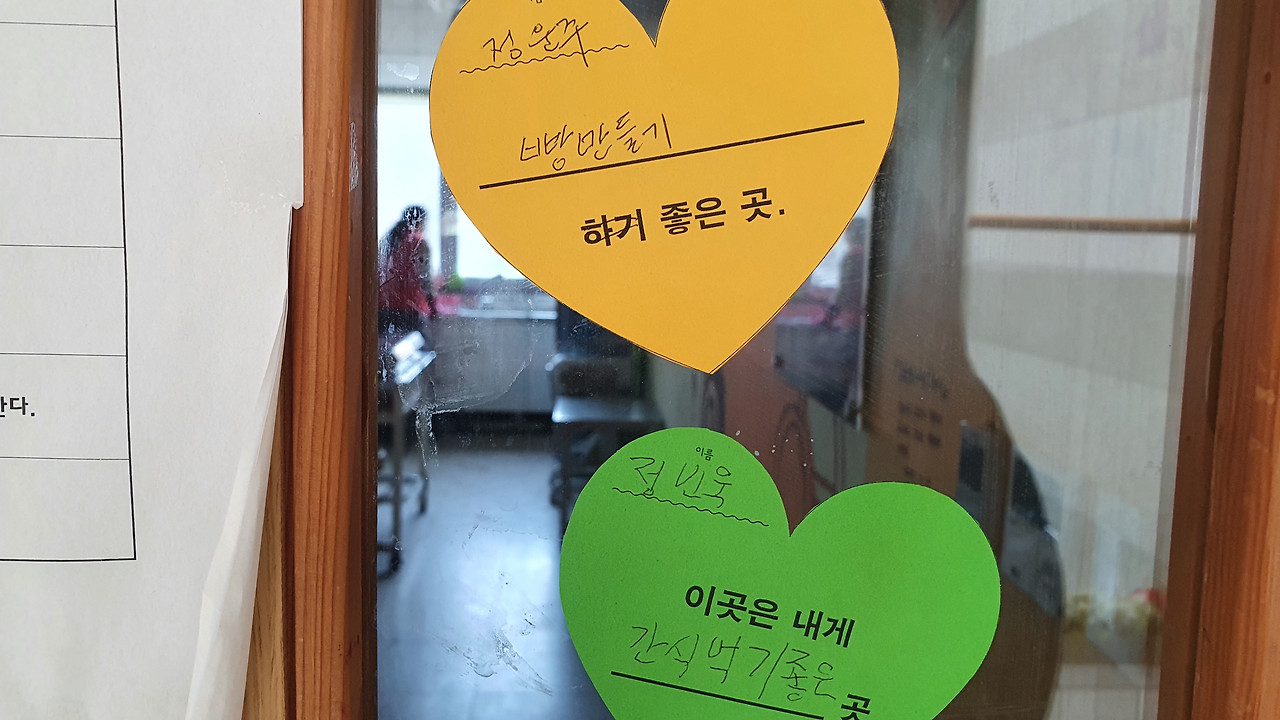 정원주
너방만들기
하기 좋은 곳.
한다.
이름
정빈욱
이곳은 내게
간식먹기좋은
곳